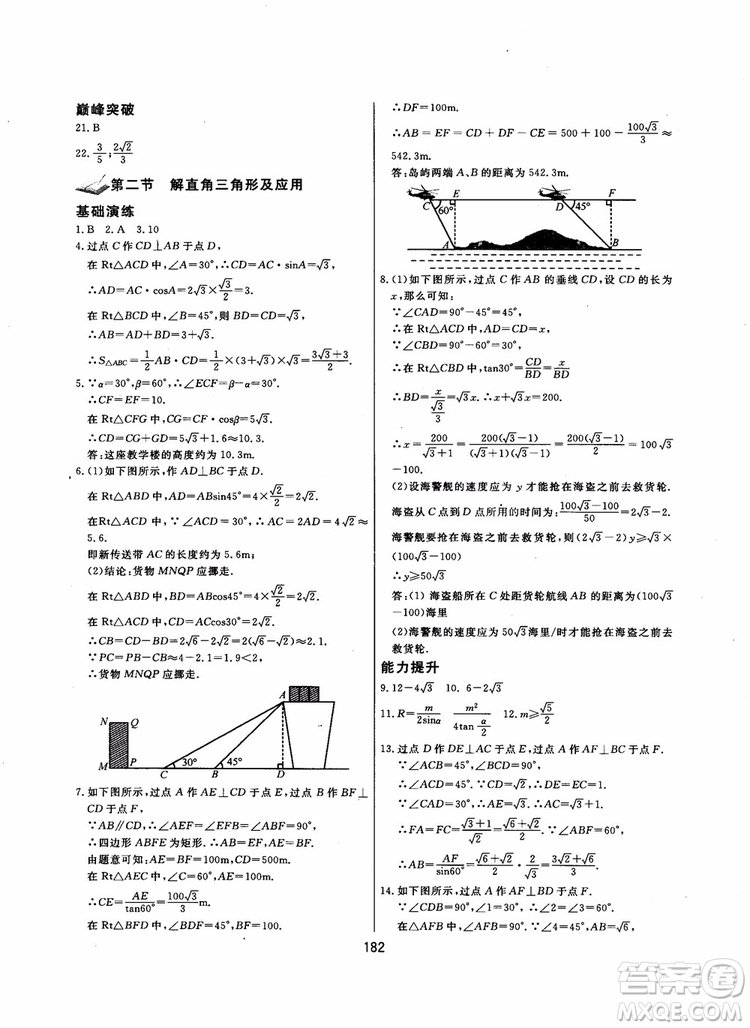 巅峰突破
21. B
22. 3/5; 2√2/3
第二节 解直角三角形及应用
基础演练
1. B 2. A 3. 10
4. 过点 C 作 CD⊥AB 于点 D,
在 Rt△ACD 中,∠A=30°,∴CD=AC·sinA=√3,
∴AD=AC·cosA=2√3×√3/2=3.
在 Rt△ACD 中,∠B=45°,则 BD=CD=√3.
∴AB=AD+BD=3+√3.
∴S△ABC=1/2AB·CD=1/2×(3+√3)×√3=(3√3+3)/2.
5. ∵α=30°,β=60°,∴∠ECF=β−α=30°.
∴CF=EF=10.
在 Rt△CFG 中,CG=CF·cosβ=5√3.
∴CD=CG+GD=5√3+1.6≈10.3.
答:这座教学楼的高度约为 10.3m.
6. (1)如下图所示,作 AD⊥BC 于点 D.
在 Rt△ABD 中,AD=ABsin45°=4×√2/2=2√2.
在 Rt△ACD 中,∵∠ACD=30°,∴AC=2AD=4√2≈
5.6.
即新传送带 AC 的长度约为 5.6m;
(2)结论:货物 MNQP 应挪走.
在 Rt△ABD 中,BD=ABcos45°=4×√2/2=2√2.
在 Rt△ACD 中,CD=ACcos30°=2√6.
∴CB=CD−BD=2√6−2√2=2(√6−√2)≈2.1.
∵PC=PB−CB≈4−2.1=1.9<2,
∴货物 MNQP 应挪走.
A
N Q
30° 45°
M P C B D
7. 如下图所示,过点 A 作 AE⊥CD 于点 E,过点 B 作 BF⊥
CD 于点 F,
∵AB∥CD,∴∠AEF=∠EFB=∠ABF=90°.
∴四边形 ABFE 为矩形.∴AB=EF,AE=BF.
由题意可知:AE=BF=100m,CD=500m.
在 Rt△AEC 中,∠C=60°,AE=100m.
∴CE=AE/tan60°=100√3/3 m.
在 Rt△BFD 中,∠BDF=45°,BF=100.
∴DF=100m.
∴AB=EF=CD+DF−CE=500+100−100√3/3≈
542.3m.
答:岛屿两端 A、B 的距离为 542.3m.
C 60° E D 45° F
A B
8. (1)如下图所示,过点 C 作 AB 的垂线 CD,设 CD 的长为
x,那么可知:
∵∠CAD=90°−45°=45°.
∴在 Rt△ACD 中,AD=CD=x,
∵∠CBD=90°−60°=30°.
∴在 Rt△CBD 中,tan30°=CD/BD=x/BD.
∴BD=x/(√3/3)=√3x.∴x+√3x=200.
∴x=200/(√3+1)=200(√3−1)/((√3+1)(√3−1))=200(√3−1)/2=100√3
−100.
(2)设海警舰的速度应为 y 才能抢在海盗去救货轮.
海盗从 C 点到 D 点所用的时间为:(100√3−100)/50=2√3−2.
海警舰要抢在海盗之前去救货轮,所以:(2√3−2)y≥√3×
(100√3−100)
∴y≥50√3
答:(1) 海盗船所在 C 处距货轮航线 AB 为(100√3
−100)海里
(2)海警舰的速度应为 50√3海里/时才能抢在海盗去
救货轮.
能力提升
9. 12−4√3 10. 6−2√3
11. R=m/2sinα m²/4tan(α/2) 12. m≥√5/2
13. 过点 D 作 DE⊥AC 于点 E,过点 A 作 AF⊥BC 于点 F.
∵∠ACB=45°,∠DEC=90°.
∴∠EDC=45°.∵DC=√2,∴DE=EC=1.
∵∠CAD=30°,∴AE=√3.∴AC=√3+1.
∴FA=FC=(√3+1)/√2=(√6+√2)/2.
∴AB=AF/sin60°=(√6+√2)/2·2/√3=(3√2+√6)/3.
14. 如下图所示,过点 A 作 AF⊥BD 于点 F.
∵∠CDB=90°,∠C=60°,∴∠CBD=30°.
在△AFB 中,∠AFB=90°,∵∠ABF=45°,AB=√6,
182
答案圈